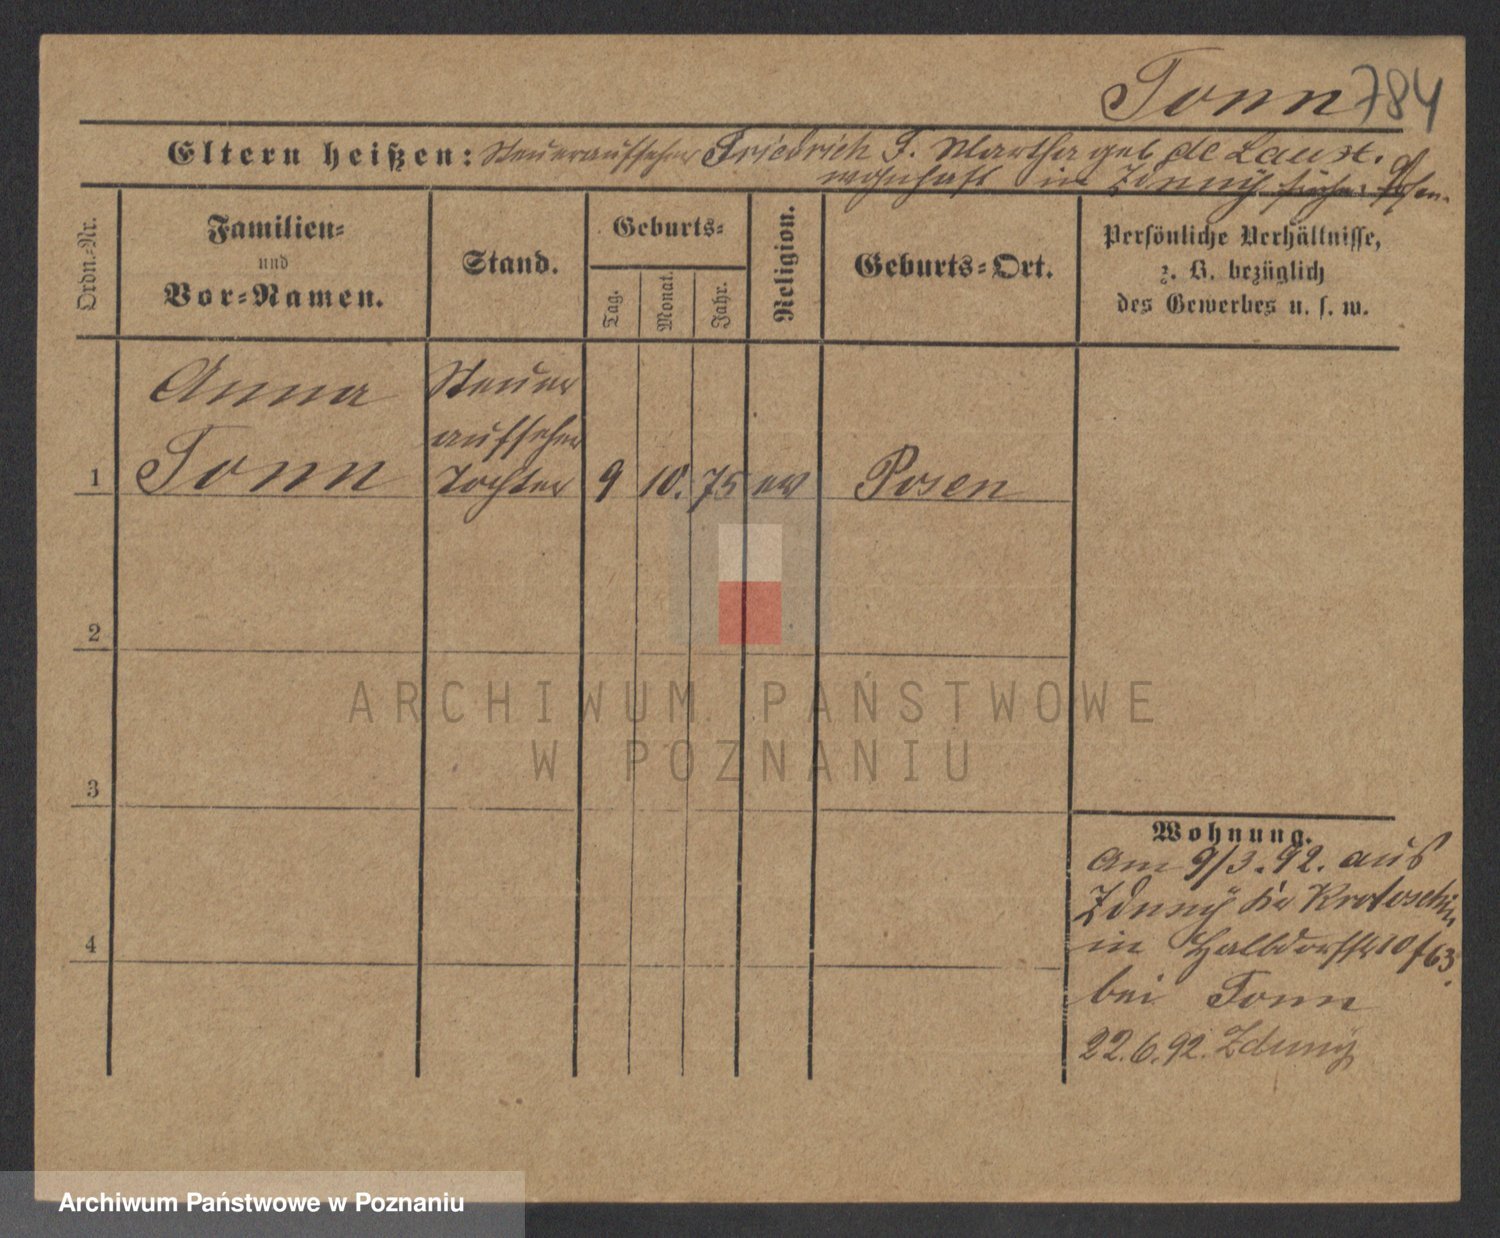 Tonn 784
Eltern heißen: Steueraufseher Friedrich T. Martha geb de
wohnhaft in Zduny früher Posen.
Ordn.-Nr.
Familien-
und
Vor-Namen.
Stand.
Geburts-
Tag.
Monat.
Jahr.
Religion.
Geburts-Ort.
Persönliche Verhältnisse,
z. B. bezüglich
des Gewerbes u. s. w.
Anna
Tonn
Steuer
aufseher
Tochter
1
9
10.
75
ev
Posen
2
3
4
Wohnung.
Am 9/3.92. aus
Zduny Kr Krotoschin
in Halbdorfstr 10
bei Tonn
22.6.92. Zduny
ARCHIWUM PAŃSTWOWE
W POZNANIU
Archiwum Państwowe w Poznaniu